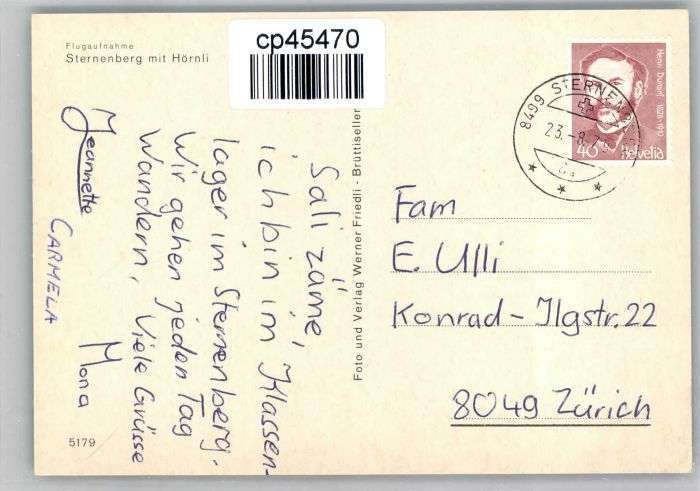 Flugaufnahme
Sternenberg mit Hörnli
cp45470
Sali zäme,
ich bin im Klassen-
lager im Sternenberg.
Wir gehen jeden Tag
Wandern, Viele Grüsse
Jeannette
CARMELA
Mona
5179
Foto und Verlag Werner Friedli - Brüttiseller
8499 STERNENB
23.-8.
Henri Dunant 1828-1910
40 Helvetia
Fam
E. Ulli
Konrad-Ilgstr. 22
8049 Zürich